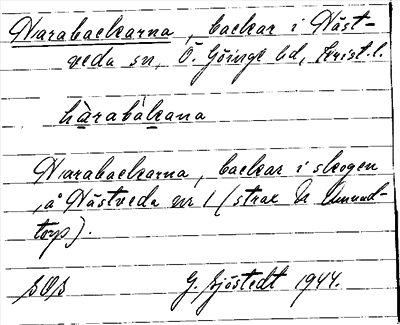 Harabackarna, backar i Näst-
veda sn, Ö. Göinge hd, Krist. l.
hàrabàkana
Harabackarna, backar i skogen
å Nästveda nr 1 (strax N Amund-
torp).
SOS G. Sjöstedt 1944.